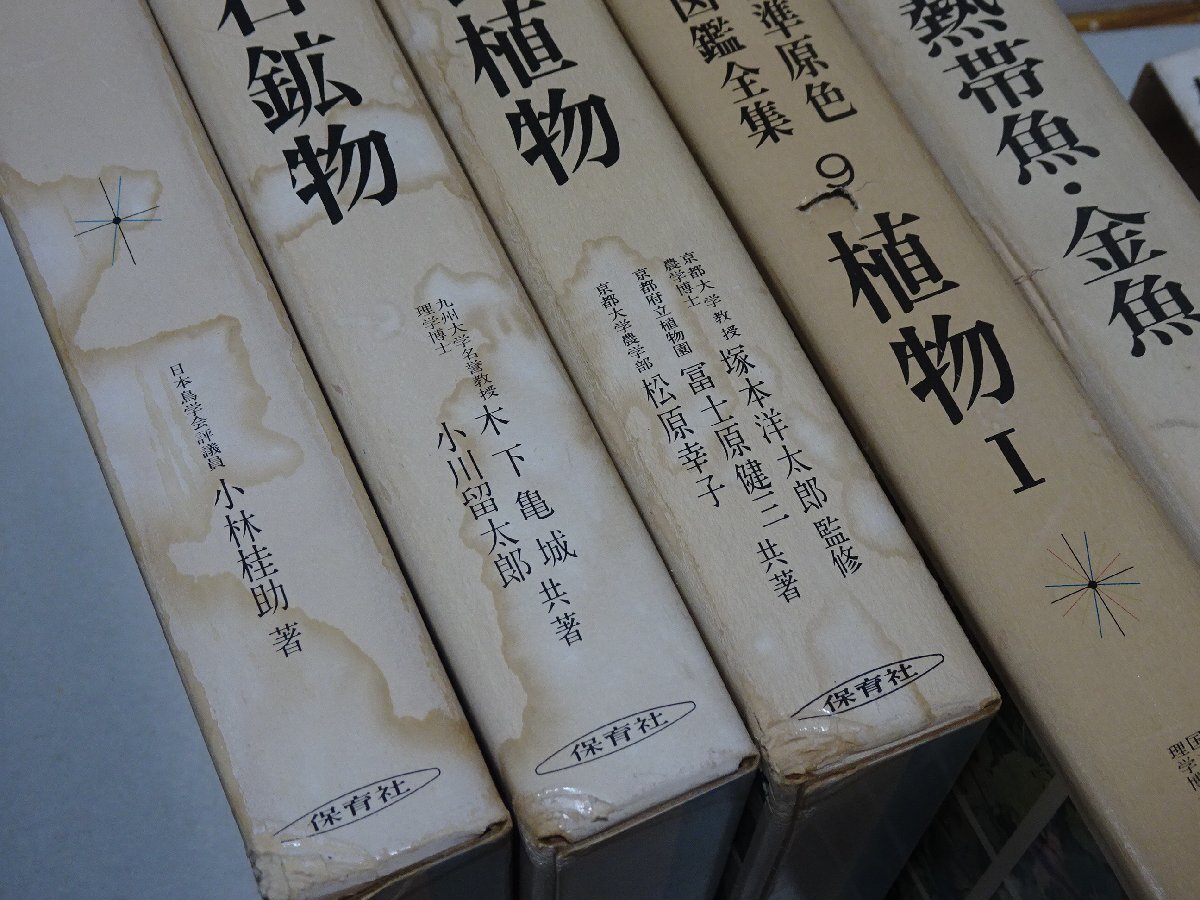 日本鳥学会評議員 小林桂助 著
保育社
石鉱物
九州大学名誉教授
理学博士
木下亀城
小川留太郎
共著
保育社
植物
京都大学教授
農学博士
塚本洋太郎 監修
京都府立植物園
冨士原健三
京都大学農学部
松原幸子
共著
保育社
準原色
図鑑全集
9
植物 I
熱帯魚・金魚